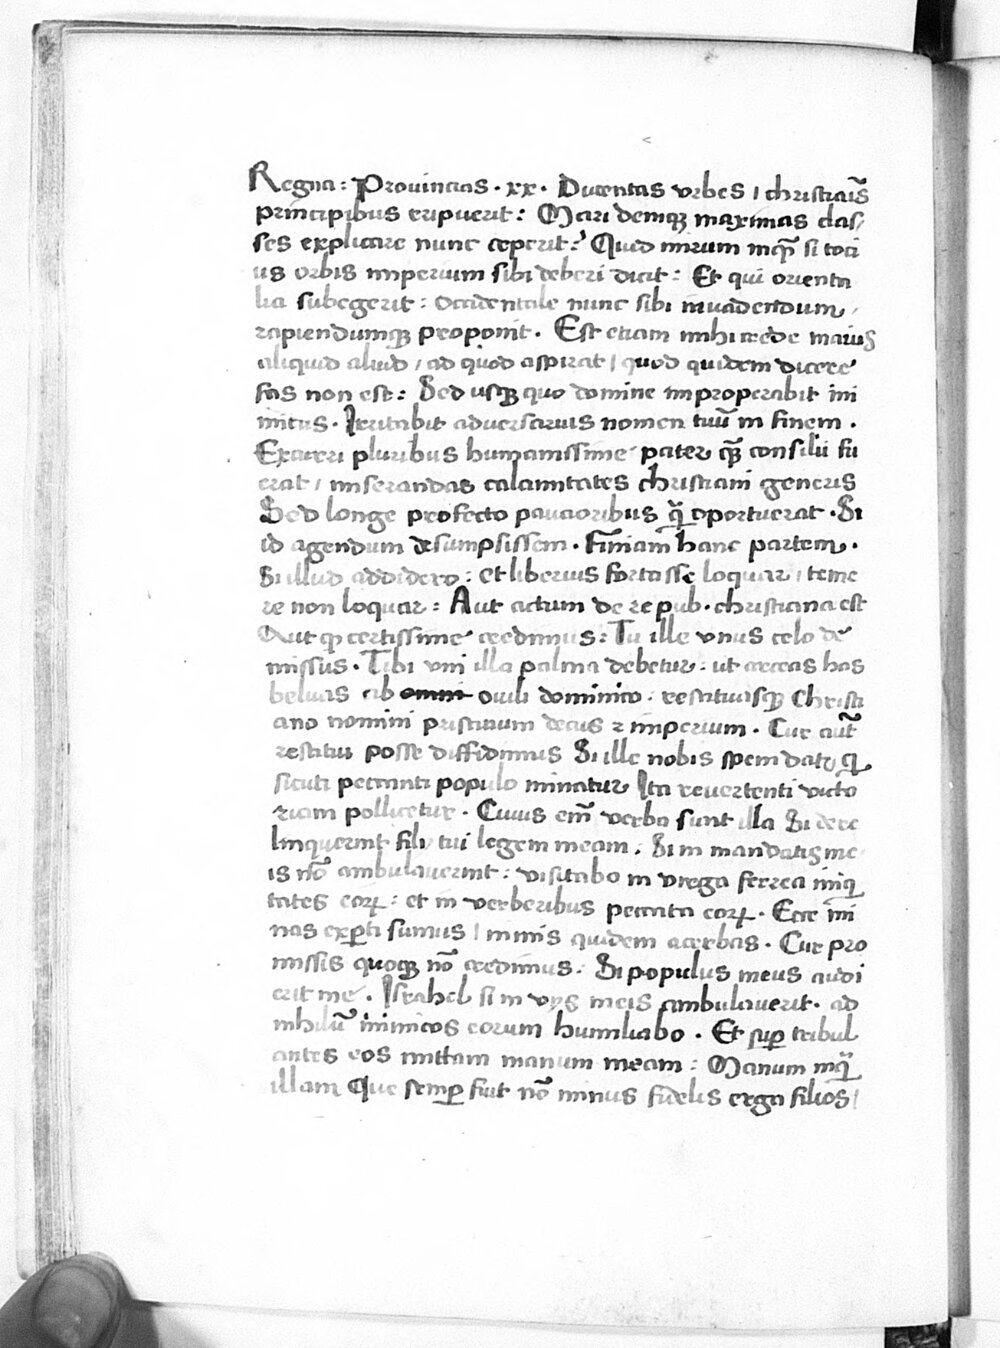 Regna : Prouincias · xx · Ducentas vrbes / christiaīs
principibus eripuerit : Mari demqꝫ maximas clas/
ses explicare nunc ceperit ? Quid mirum inqꝫ si toci
us orbis imperium sibi deberi dicit : Et qui orienta
lia subegerit : occidentale nunc sibi inuadendum /
rapiendumqꝫ proponit . Est etiam mihi crede maius
aliquid aliud / ad quod aspirat / quod quidem dicere
fas non est : Sed usqꝫ quo domine improperabit ini
micus . Irritabit aduersarius nomen tuū in finem .
Exaceri pluribus humanissime pater qꝫ consilii fu
erat / miserandas calamitates christiani generis
Sed longe profecto paucioribus q̄ oportuerat . Si
id agendum desumpsissem . Finiam hanc partem .
Si illud addidero : et liberius fortasse loquar / teme
re non loquar : Aut actum de re pub . christiana est
Aut qꝫ certissime credimus : Tu ille vnus celo de
missus . Tibi vni illa palma debetur : ut arceas has
beluas ab ouili dominico : restituisqꝫ Christi
ano nomini pristinum decus ⁊ imperium . Cur aūt
restitui posse diffidimus Si ille nobis spem dat / q
sicuti peccanti populo minatur Ita reuertenti victo
riam pollicetur . Cuius em̄ verba sunt illa Si dere
linquerint filii tui legem meam . Si in mandatis me
is nō ambulauerint : visitabo in virga ferrea iniqi
tates eoꝝ : et in verberibus peccata eoꝝ . Ecce mi
nas exꝑti sumus / minis quidem acerbas . Cur pro
missis quoqꝫ nō credimus : Si populus meus audi
erit me . Israhel si in vijs meis ambulauerit . ad
nihilū inimicos eorum humiliabo . Et suꝑ tribul
antes eos mittam manum meam : Manum inqi
illam Que semꝑ fuit nō minus fidelis erga filios /